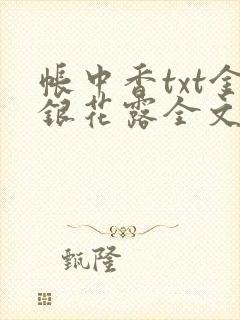 帐中香txt金
银花露全文
甄隆